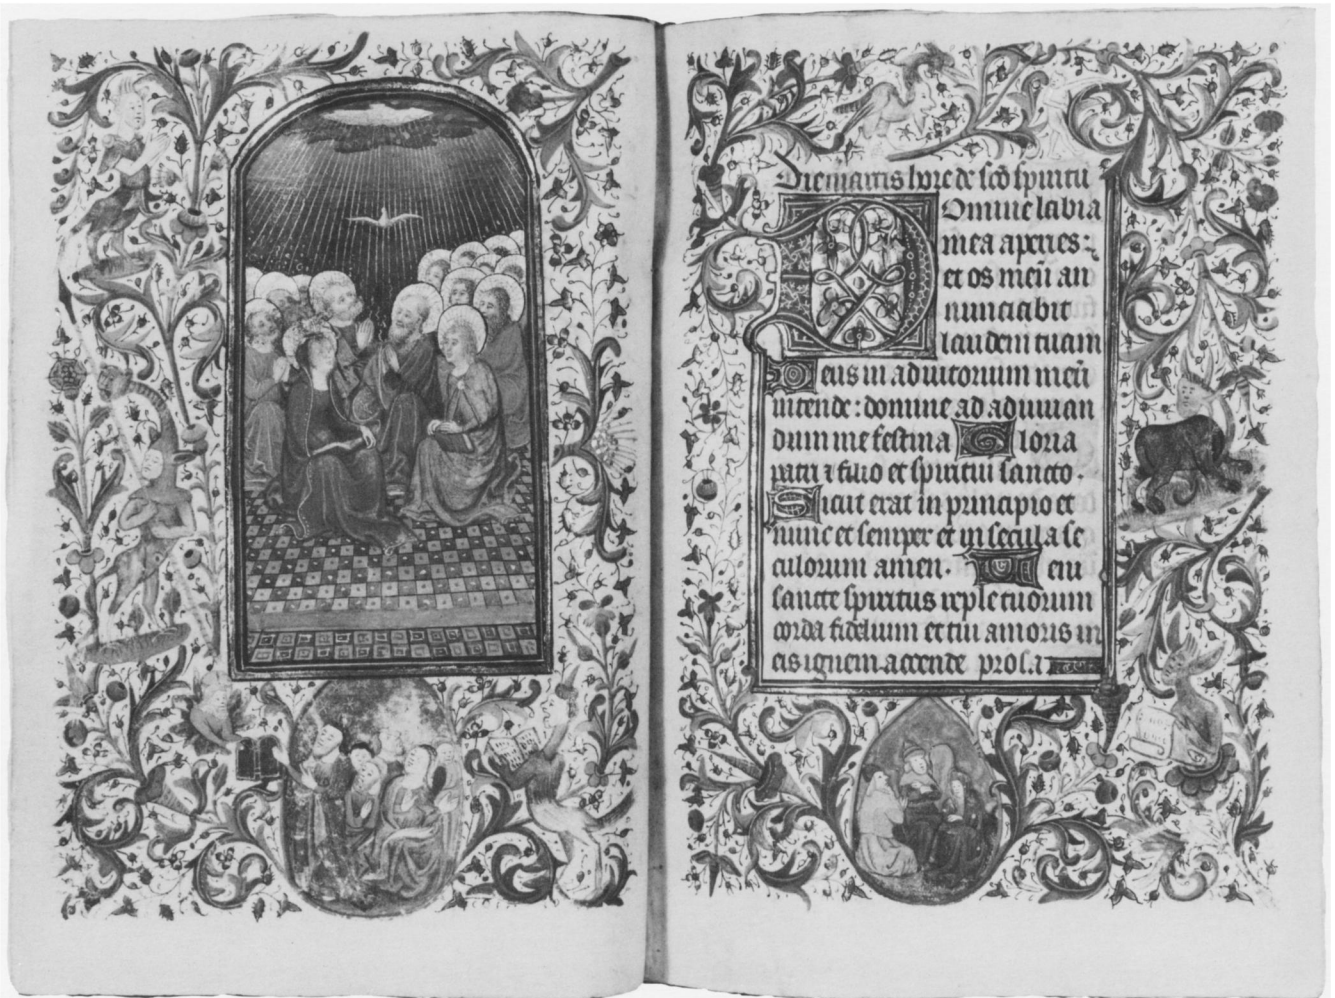 Die martis hore de sc̄o spiritu
Domine labia
mea aperies:
et os meū an
nunciabit
laudem tuam
Deus in adiutorium meū
intende: domine ad adiuuan
dum me festina Gloria
patri ⁊ filio et spiritui sancto.
Sicut erat in principio et
nunc et semper et in secula se
culorum amen. Ueni
sancte spiritus reple tuorum
corda fidelium et tui amoris in
eis ignem accende prosa